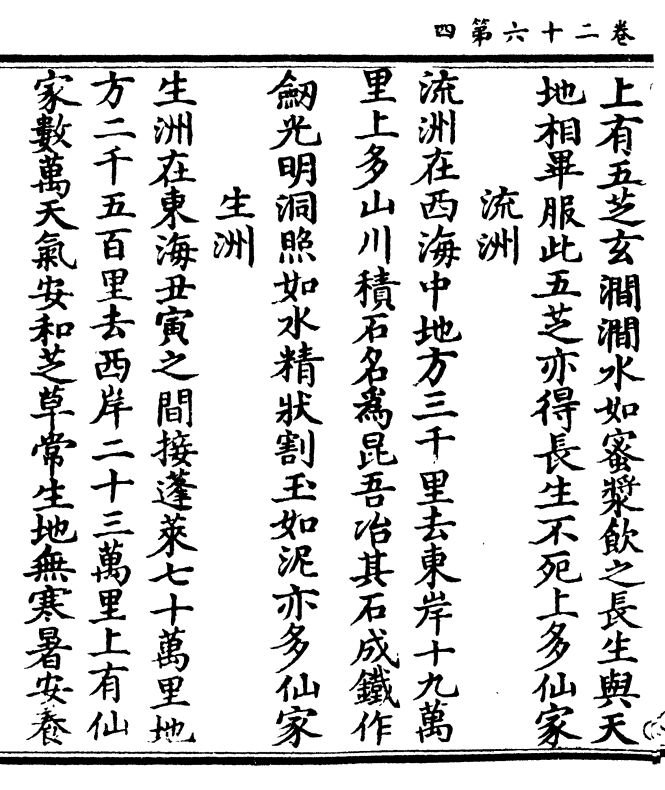 卷二十六第四
上有五芝玄澗澗水如蜜漿飲之長生與天
地相畢服此五芝亦得長生不死上多仙家
流洲
流洲在西海中地方三千里去東岸十九萬
里上多山川積石名爲昆吾冶其石成鐵作
劒光明洞照如水精狀割玉如泥亦多仙家
生洲
生洲在東海丑寅之間接蓬萊七十萬里地
方二千五百里去西岸二十三萬里上有仙
家數萬天氣安和芝草常生地無寒暑安養